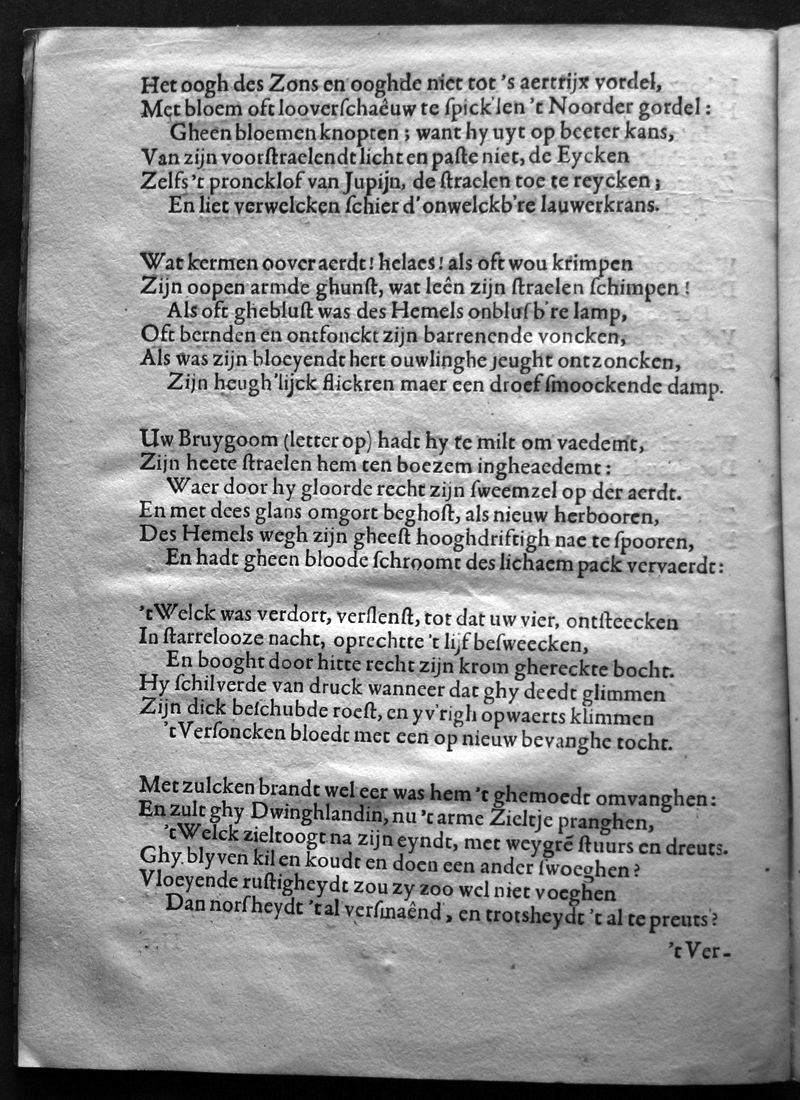 Het oogh des Zons en ooghde niet tot 's aertrijx vordel,
Met bloem oft looverſchaêuw te ſpick'len 't Noorder gordel:
Gheen bloemen knopten; want hy uyt op beeter kans,
Van zijn voorſtraelendt licht en paſte niet, de Eycken
Zelfs 't proncklof van Jupijn, de ſtraelen toe te reycken;
En liet verwelcken ſchier d'onwelckb're lauwerkrans.
Wat kermen oover aerdt! helaes! als oft wou krimpen
Zijn oopen armde ghunſt, wat leên zijn ſtraelen ſchimpen!
Als oft ghebluſt was des Hemels onbluſb're lamp,
Oft bernden en ontfonckt zijn barrenende voncken,
Als was zijn bloeyendt hert ouwlinghe jeught ontzoncken,
Zijn heugh'lijck flickren maer een droef ſmoockende damp.
Uw Bruygoom (letter op) hadt hy te milt om vaedemt,
Zijn heete ſtraelen hem ten boezem ingheaedemt:
Waer door hy gloorde recht zijn ſweemzel op der aerdt.
En met dees glans omgort beghoſt, als nieuw herbooren,
Des Hemels wegh zijn gheeſt hooghdriftigh nae te ſpooren,
En hadt gheen bloode ſchroomt des lichaem pack vervaerdt:
't Welck was verdort, verſlenſt, tot dat uw vier, ontſteecken
In ſtarrelooze nacht, oprechtte 't lijf beſweecken,
En booght door hitte recht zijn krom ghereckte bocht.
Hy ſchilverde van druck wanneer dat ghy deedt glimmen
Zijn dick beſchubde roeſt, en yv'righ opwaerts klimmen
't Verſoncken bloedt met een op nieuw bevanghe tocht.
Met zulcken brandt wel eer was hem 't ghemoedt omvanghen:
En zult ghy Dwinghlandin, nu 't arme Zieltje pranghen,
't Welck zieltoogt na zijn eyndt, met weygrē ſtuurs en dreuts.
Ghy blyven kil en koudt en doen een ander ſwoeghen?
Vloeyende ruſtigheydt zou zy zoo wel niet voeghen
Dan norſheydt 't al verſmaênd, en trotsheydt 't al te preuts?
't Ver-